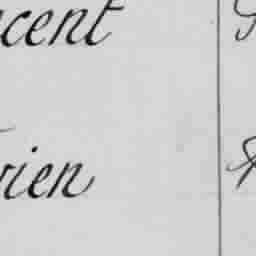 cent
rien